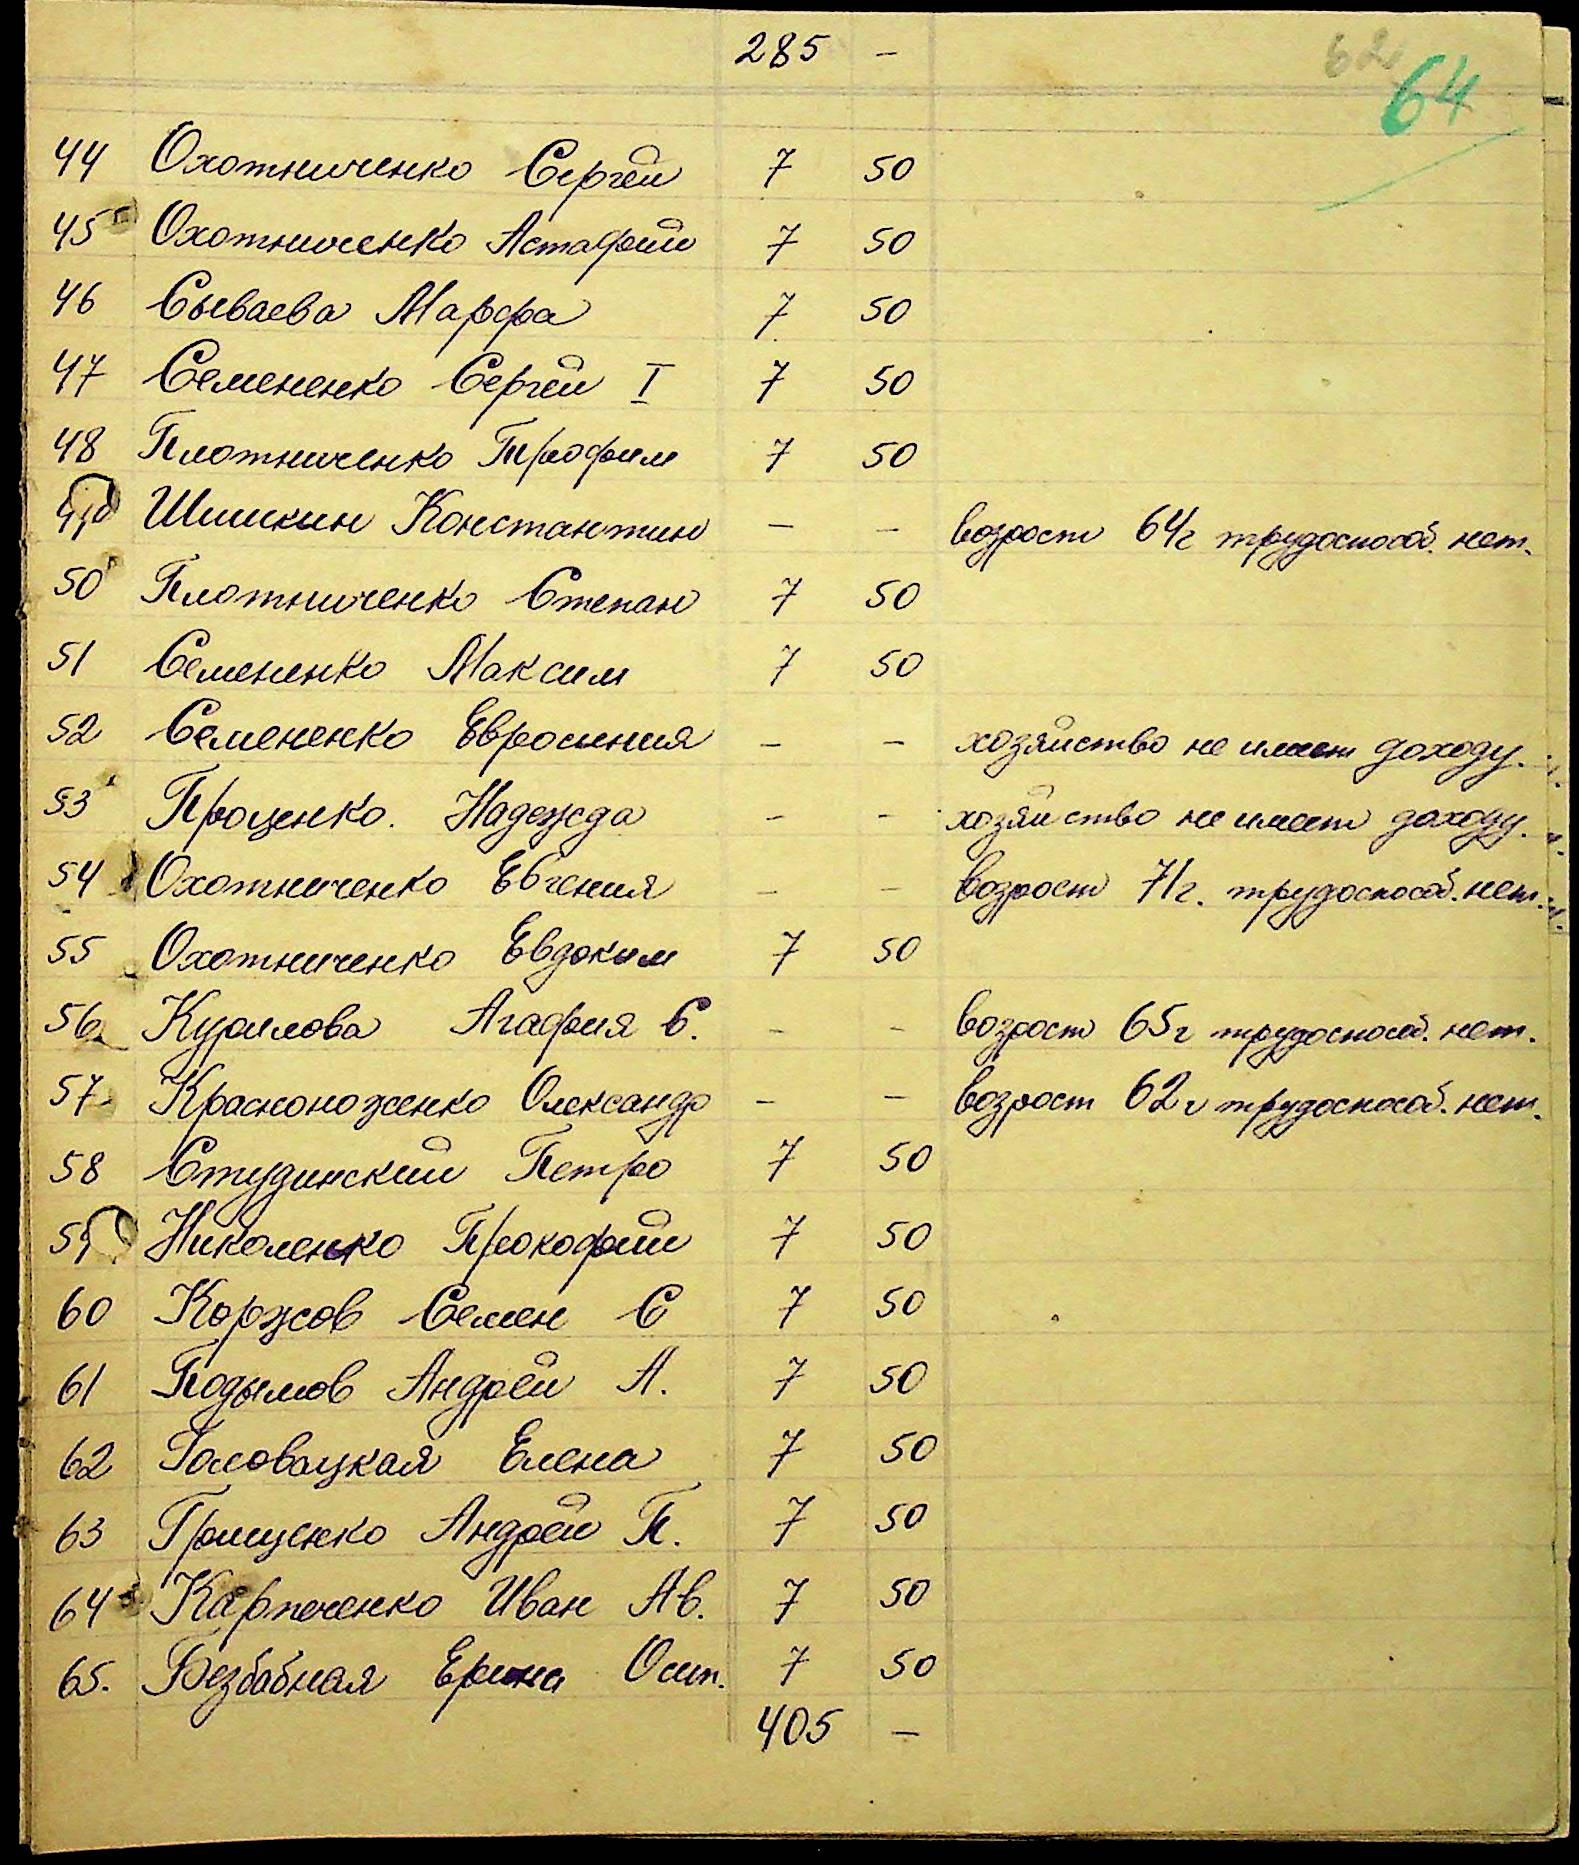 285 –
62
64
44 Охотниченко Сергей 7 50
45 Охотниченко Астафий 7 50
46 Сываева Марфа 7 50
47 Семененко Сергей I 7 50
48 Плотниченко Трофим 7 50
49 Шишкин Константин – – возрост 64г трудоспособ. нет.
50 Плотниченко Степан 7 50
51 Семененко Максим 7 50
52 Семененко Евросиния – – хозяйство не имеет доходу.
53 Проценко. Надежда – – хозяйство не имеет доходу.
54 Охотниченко Евгения – – возрост 71г. трудоспособ. нет.
55 Охотниченко Евдоким 7 50
56 Курилова Агафия С. – – возрост 65г трудоспособ. нет.
57 Красноноженко Олександр – – возрост 62г трудоспособ. нет.
58 Студинский Петро 7 50
59 Николенко Прокофий 7 50
60 Коржов Семен С 7 50
61 Подымов Андрей А. 7 50
62 Головацкая Елена 7 50
63 Грищенко Андрей П. 7 50
64 Карпеченко Иван Ав. 7 50
65. Беззбабная Ерина Осип. 7 50
405 –